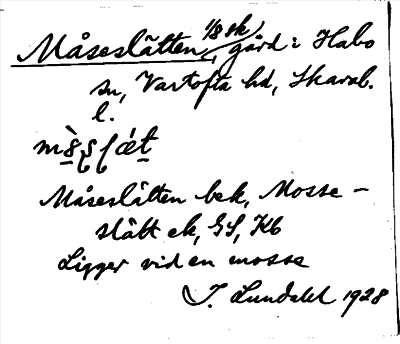 Måseslätten, 1/8 sk, gård i Habo
sn, Vartofta hd, Skarab.
l.
Måseslätten bek, Mosse-
slätt ek, GS, Kb
Ligger vid en mosse
J. Lundahl 1928